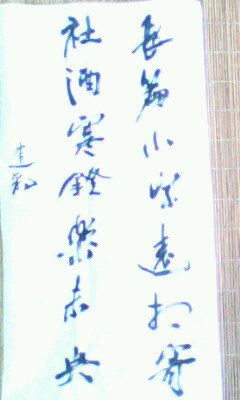 長篇小字遠相寄
社酒寒燈樂未央